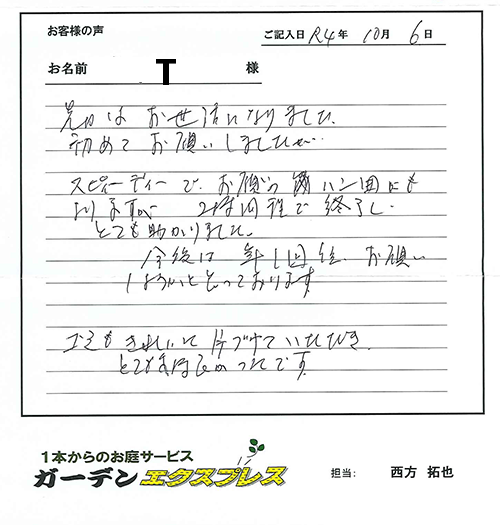 お客様の声
ご記入日 R4年 10月 6日
お名前 T 様
先日はお世話になりました。
初めてお願いしましたが…
スピーディーで、お願いの ハン囲にも
よりますが 2時間程で終了し、
とても助かりました。
今後は 年1回 お願い
しようかと思っております
ゴミもきれいに片づけていただき、
とても気持良かったです。
1本からのお庭サービス
ガーデンエクスプレス
担当: 西方 拓也